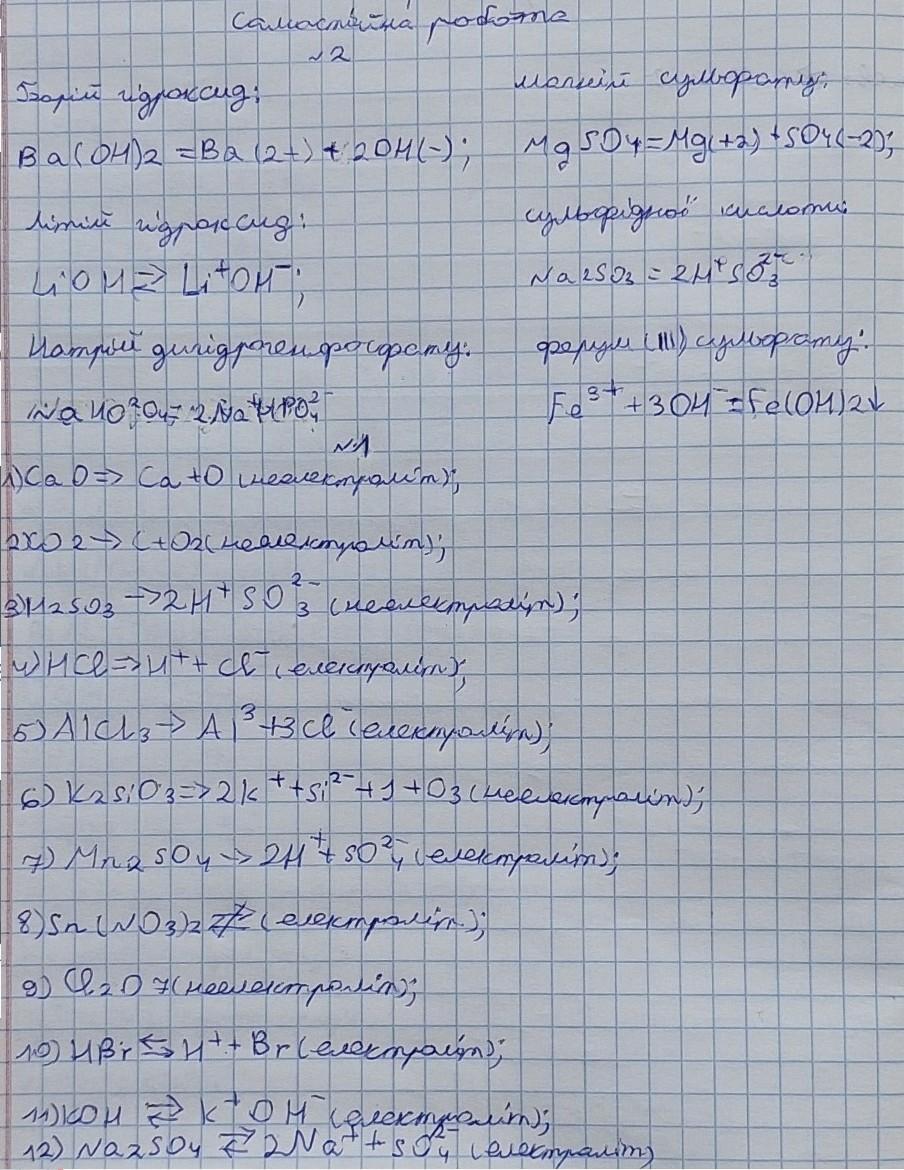 Самостійна робота
№2
Барій гідроксид:
Ba(OH)2 = Ba(2+) + 2OH(-);
Літій гідроксид:
LiOH ⇄ Li⁺OH⁻;
Натрій дигідрогенфосфату:
магній сульфату:
MgSO4=Mg(+2)+SO4(-2);
сульфідної кислоти:
Na2SO3 = 2H⁺SO₃²⁻
ферум (III) сульфату:
Fe³⁺ + 3OH⁻ = Fe(OH)2↓
№1
1) CaO => Ca+O (неелектроліт);
2) CO2 -> C+O2 (неелектроліт);
3) H2SO3 -> 2H⁺ SO₃²⁻ (неелектроліт);
4) HCl => H⁺ + Cl⁻ (електроліт);
5) AlCl3 -> Al³+3Cl⁻ (електроліт);
6) K2SiO3 => 2K⁺ + Si²⁻ + 1 + O3 (неелектроліт);
7) Mn2SO4 -> 2H⁺ + SO₄²⁻ (електроліт);
8) Sn(NO3)2 ⇄ (електроліт);
9) Cl2O7 (неелектроліт);
10) HBr ⇆ H⁺ + Br (електроліт);
11) KOH ⇄ K⁺OH⁻ (електроліт);
12) Na2SO4 ⇄ 2Na⁺ + SO₄²⁻ (електроліт)